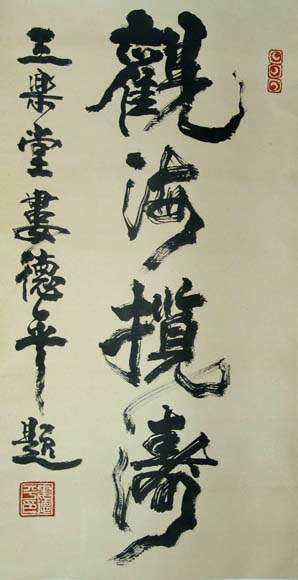 觀海攬濤
三樂堂婁德平題